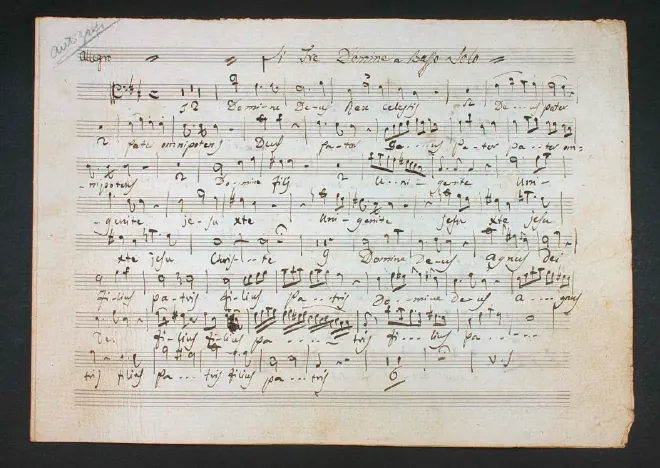 Allegro Domine a Basso Solo
52 Domine Deus Rex Celestis 52 De--us pater
2 pater omnipotens Deus pa-ter Pa-ter pa-ter om-
nipotens 2 Domine fili 2 U-ni-genite Uni-
-genite je-su xte Uni-genite jesu xte jesu
xte jesu Chris--te 9 Domine De-us Agnus Dei
filius pa-tris filius pa--tris Do--mine De-us A---gnus
filius filius pa-----tris fi--lius pa---
tris filius Pa---tris filius pa--tris 6 V.S